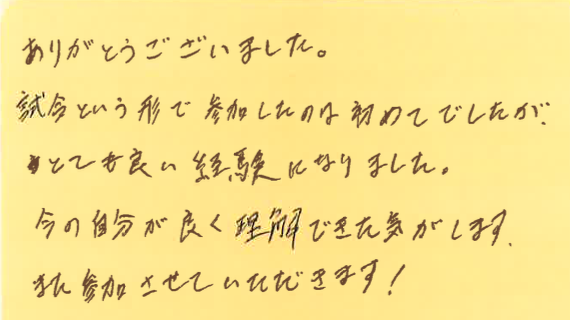 ありがとうございました。
試合という形で参加したのは初めてでしたが、
とても良い経験になりました。
今の自分が良く理解できた気がします、
また参加させていただきます!